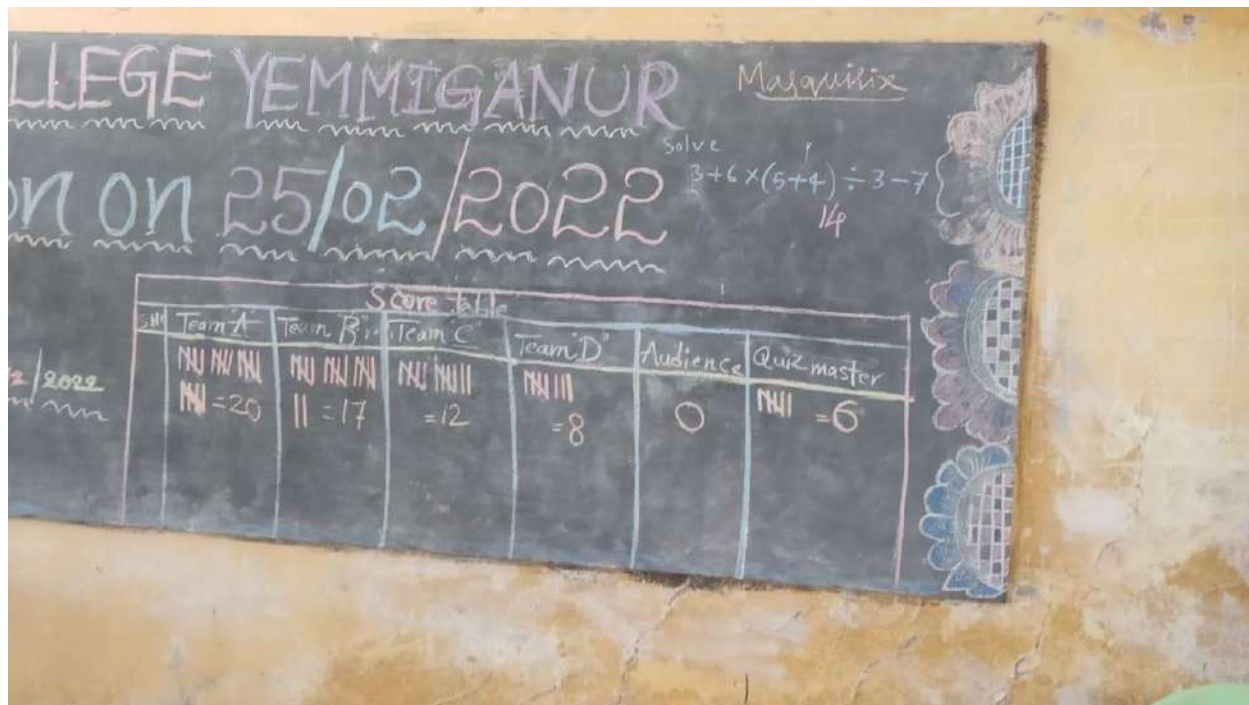 LLEGE YEMMIGANUR
Masquisix
ON ON 25/02/2022
Solve
3+6×(5+4)÷3-7
14
Score table
Team "A" Team "B" Team "C" Team "D" Audience Quiz master
=20 =17 =12 =8 0 =6
2/2022